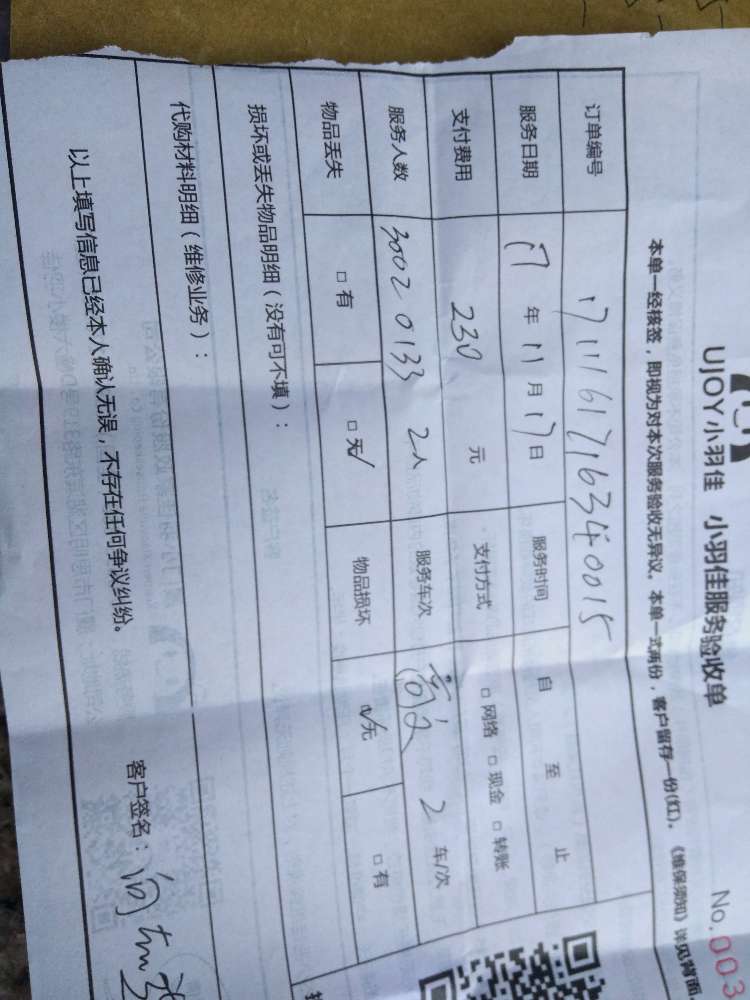 UJOY小羽佳 小羽佳服务验收单
No.003
本单一经核签，即视为对本次服务验收无异议。本单一式两份，客户留存一份(红)。《维保须知》详见背面
订单编号 1711161716340015
服务日期 17 年 11 月 17 日 服务时间 自 至 止
支付费用 230 元 支付方式 □ 网络 □ 现金 □ 转账
服务人数 30020133 2人 服务车次 2 车/次
物品丢失 □ 有 □ 无√ 物品损坏 □√无 □ 有
损坏或丢失物品明细（没有可不填）：
代购材料明细（维修业务）：
以上填写信息已经本人确认无误，不存在任何争议纠纷。
客户签名：